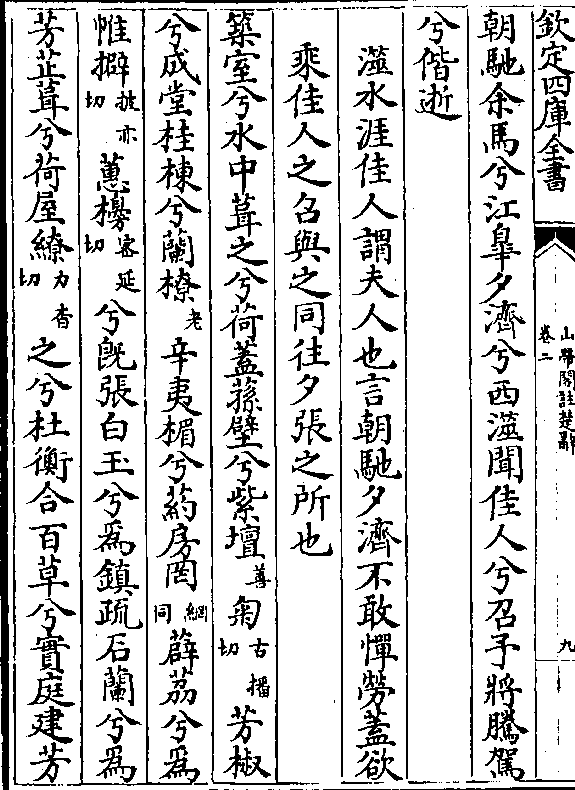 欽定四庫全書
山帶閣註楚辭
卷二
九
朝馳余馬兮江皋夕濟兮西澨聞佳人兮召予將騰駕
兮偕逝
澨水涯佳人謂夫人也言朝馳夕濟不敢憚勞蓋欲
乘佳人之召與之同往夕張之所也
築室兮水中葺之兮荷蓋蓀壁兮紫壇善匊古播切芳椒
兮成堂桂棟兮蘭橑老辛夷楣兮葯房罔網同薜荔兮為
帷擗披亦切蕙櫋密延切兮既張白玉兮為鎮疏石蘭兮為
芳芷葺兮荷屋繚力杳切之兮杜衡合百草兮實庭建芳